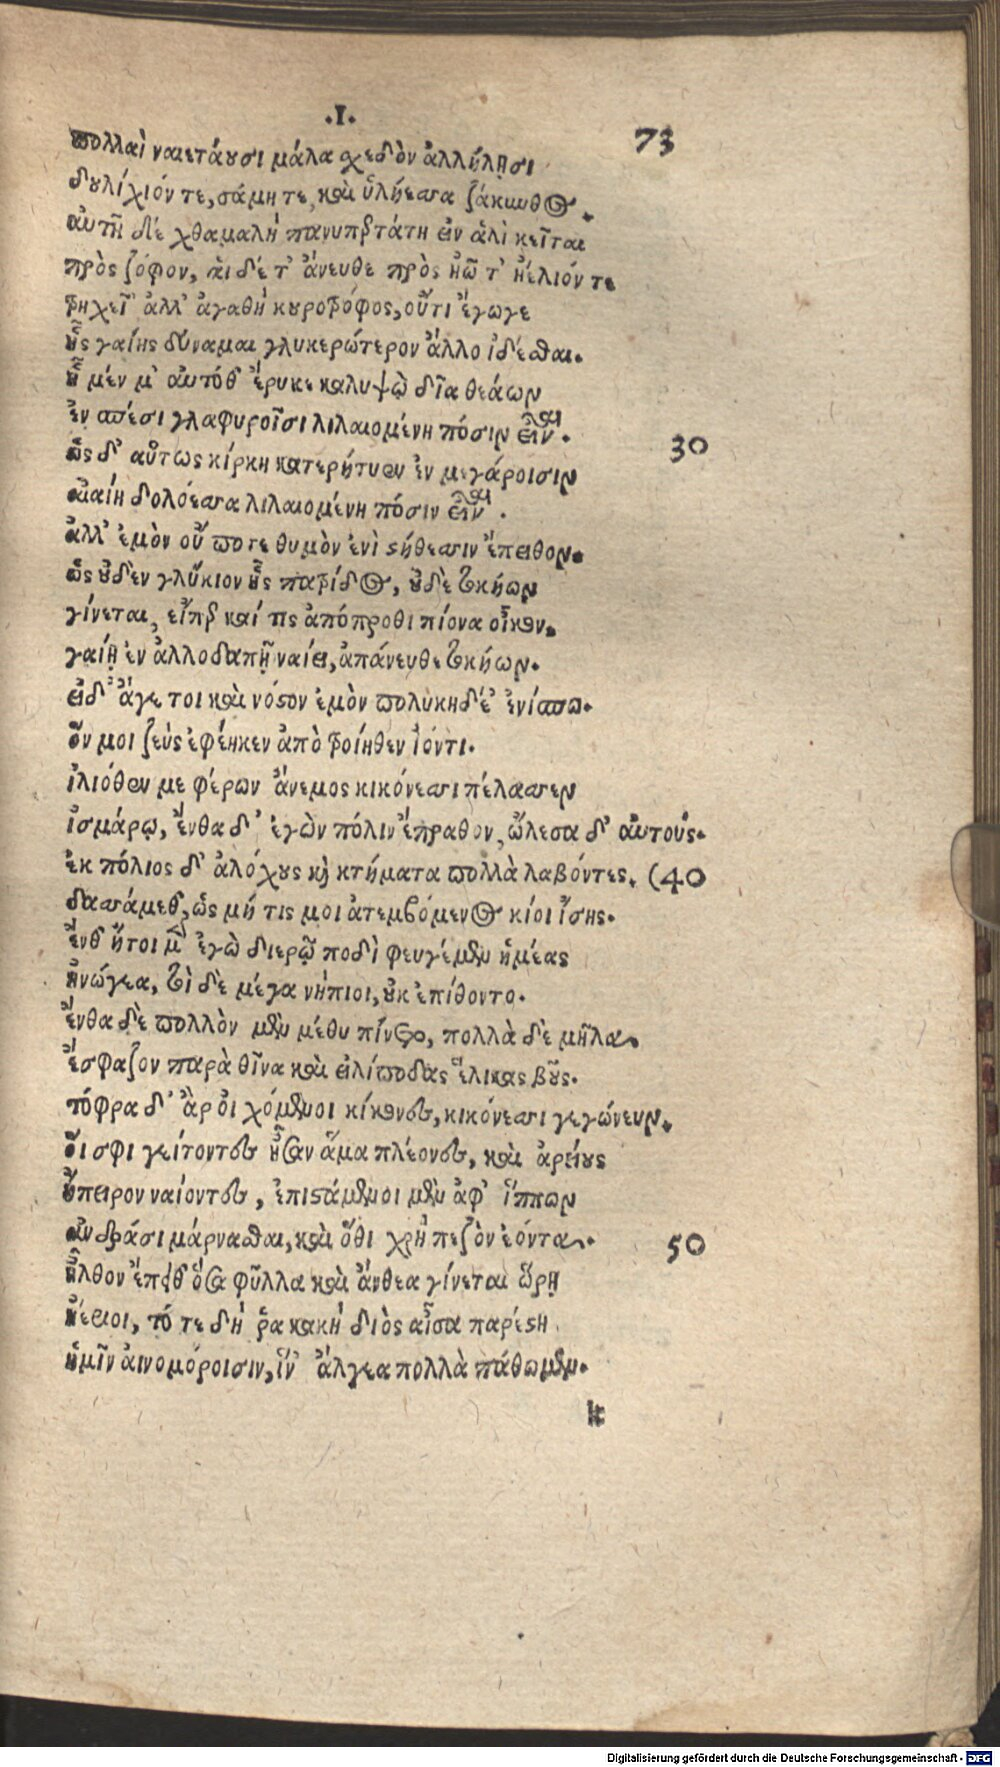 .Ι.
73
πολλαὶ ναιετάουσι μάλα σχεδὸν ἀλλήλῃσι
δουλίχιόν τε, σάμη τε, καὶ ὑλήεσσα ζάκυνθος.
αὐτὴ δὲ χθαμαλὴ πανυπερτάτη εἰν ἁλὶ κεῖται
πρὸς ζόφον, αἱ δέ τ' ἄνευθε πρὸς ἠῶ τ' ἠέλιόν τε
τρηχεῖ' ἀλλ' ἀγαθὴ κουροτρόφος, οὔτι ἔγωγε
ἧς γαίης δύναμαι γλυκερώτερον ἄλλο ἰδέσθαι.
ἦ μέν μ' αὐτόθ' ἔρυκε καλυψὼ δῖα θεάων
ἐν σπέσι γλαφυροῖσι λιλαιομένη πόσιν εἶναι.
30
ὣς δ' αὔτως κίρκη κατερήτυεν ἐν μεγάροισιν
αἰαίη δολόεσσα λιλαιομένη πόσιν εἶναι.
ἀλλ' ἐμὸν οὔ ποτε θυμὸν ἐνὶ στήθεσσιν ἔπειθον.
ὣς οὐδὲν γλύκιον ἧς πατρίδος, οὐδὲ τοκήων
γίνεται, εἴπερ καί τις ἀπόπροθι πίονα οἶκον.
γαίῃ ἐν ἀλλοδαπῇ ναίει, ἀπάνευθε τοκήων.
εἰδ' ἄγε τοι καὶ νόστον ἐμὸν πολυκηδέ' ἐνίσπω.
ὅν μοι ζεὺς ἐφέηκεν ἀπὸ τροίηθεν ἰόντι.
ἰλιόθεν με φέρων ἄνεμος κικόνεσσι πέλασσεν
ἰσμάρῳ, ἔνθα δ' ἐγὼν πόλιν ἔπραθον, ὤλεσα δ' αὐτούς.
ἐκ πόλιος δ' ἀλόχους καὶ κτήματα πολλὰ λαβόντες. (40
δασσάμεθ', ὡς μή τις μοι ἀτεμβόμενος κίοι ἴσης.
ἔνθ' ἤτοι μὲν ἐγὼ διερῷ ποδὶ φευγέμεν ἡμέας
ἠνώγεα, τοὶ δὲ μέγα νήπιοι, οὐκ ἐπίθοντο.
ἔνθα δὲ πολλὸν μὲν μέθυ πίνετο, πολλὰ δὲ μῆλα
ἔσφαζον παρὰ θῖνα καὶ εἰλίποδας ἕλικας βοῦς.
τόφρα δ' ἂρ οἰχόμενοι κίκονες, κικόνεσσι γεγώνευν.
οἵ σφι γείτοντες ἦσαν ἅμα πλέονες, καὶ ἀρείους
ἤπειρον ναίοντες, ἐπιστάμενοι μὲν ἀφ' ἵππων
ἀνδράσι μάρνασθαι, καὶ ὅθι χρὴ πεζὸν ἐόντα.
50
ἦλθον ἔπειθ' ὅσα φύλλα καὶ ἄνθεα γίνεται ὥρῃ
ἠέριοι, τό τε δή ῥα κακὴ διὸς αἶσα παρέστη
ἡμῖν αἰνομόροισιν, ἵν' ἄλγεα πολλὰ πάθωμεν.
k
Digitalisierung gefördert durch die Deutsche Forschungsgemeinschaft - DFG